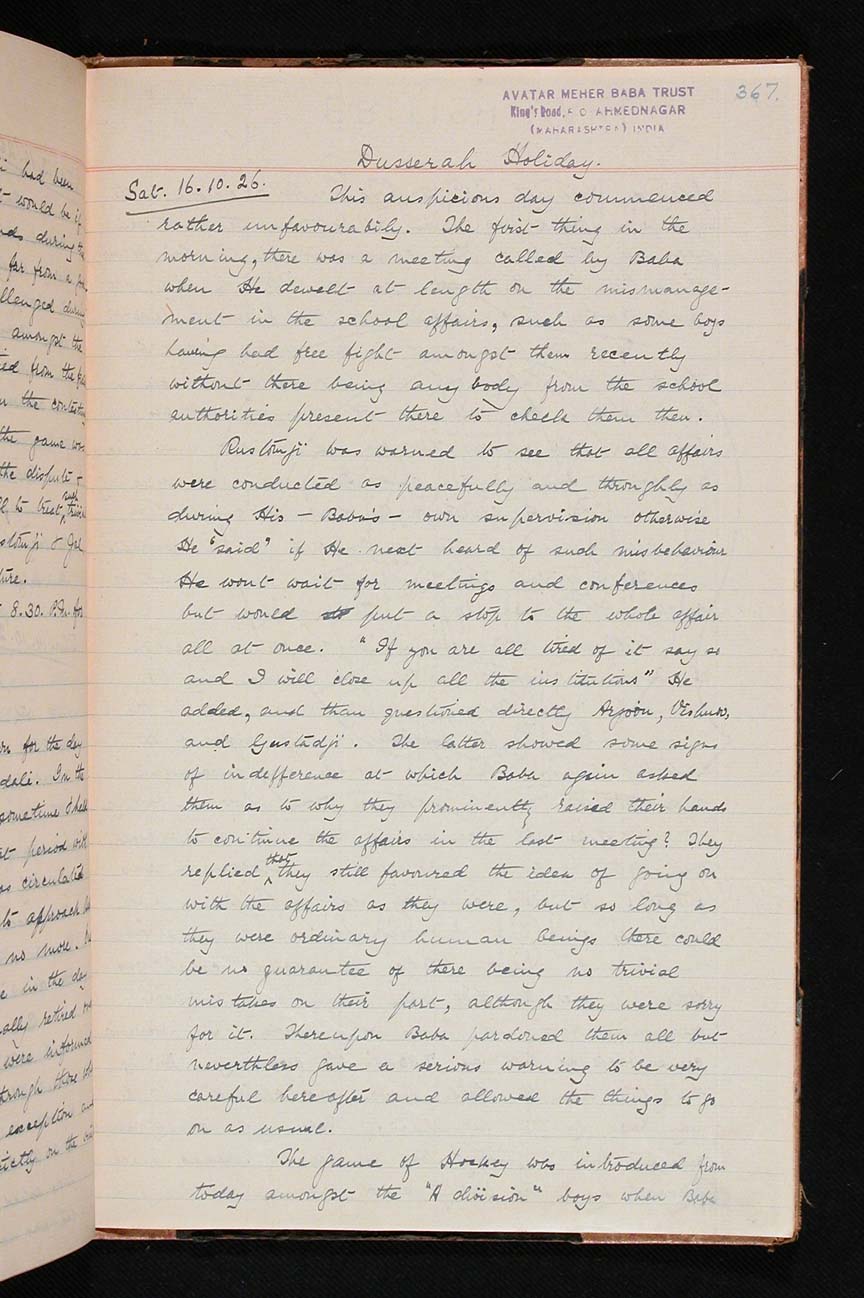 i had been
t would be if
nds during the
far from a
llenged during
amongst the
ed from the
n the contesting
the game was
the dispute &
such
ll to treat trivial
stomji &
ture.
8.30. P.M. for
on for the day
dali. In the
sometime
at period with
as circulated
to approach
no more.
e in the day
ally retired
were informed
through those who
exception and
rictly on the
AVATAR MEHER BABA TRUST
King's Road, P.O. AHMEDNAGAR
(MAHARASHTRA) INDIA
367.
Dusserah Holiday.
Sat. 16.10.26. This auspicious day commenced
rather unfavourabily. The first thing in the
morning, there was a meeting called by Baba
when He dewelt at length on the mismanage-
ment in the school affairs, such as some boys
having had free fight amongst them recently
without there being any body from the school
authorities present there to check them then.
Rustomji was warned to see that all affairs
were conducted as peacefully and throughly as
during His - Baba's - own supervision otherwise
He "said" if He next heard of such misbehaviour
He wont wait for meetings and conferences
but would put a stop to the whole affair
all at once. "If you are all tired of it say so
and I will close up all the institutions" He
added, and than questioned directly Arjoon, Vishnu,
and Gustadji. The latter showed some signs
of indefference at which Baba again asked
them as to why they prominently raised their hands
to continue the affairs in the last meeting? They
replied that they still favoured the idea of going on
with the affairs as they were, but so long as
they were ordinary human beings there could
be no guarantee of there being no trivial
mistakes on their part, although they were sorry
for it. Thereupon Baba pardoned them all but
neverthless gave a serious warning to be very
careful hereafter and allowed the things to go
on as usual.
The game of Hockey was introduced from
today amongst the "A division" boys when Baba